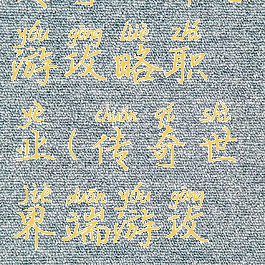 yóu gōng lüè zhí
游攻略职
yè chuán qí shì
业(传奇世
jiè duān yóu gōng
界端游攻